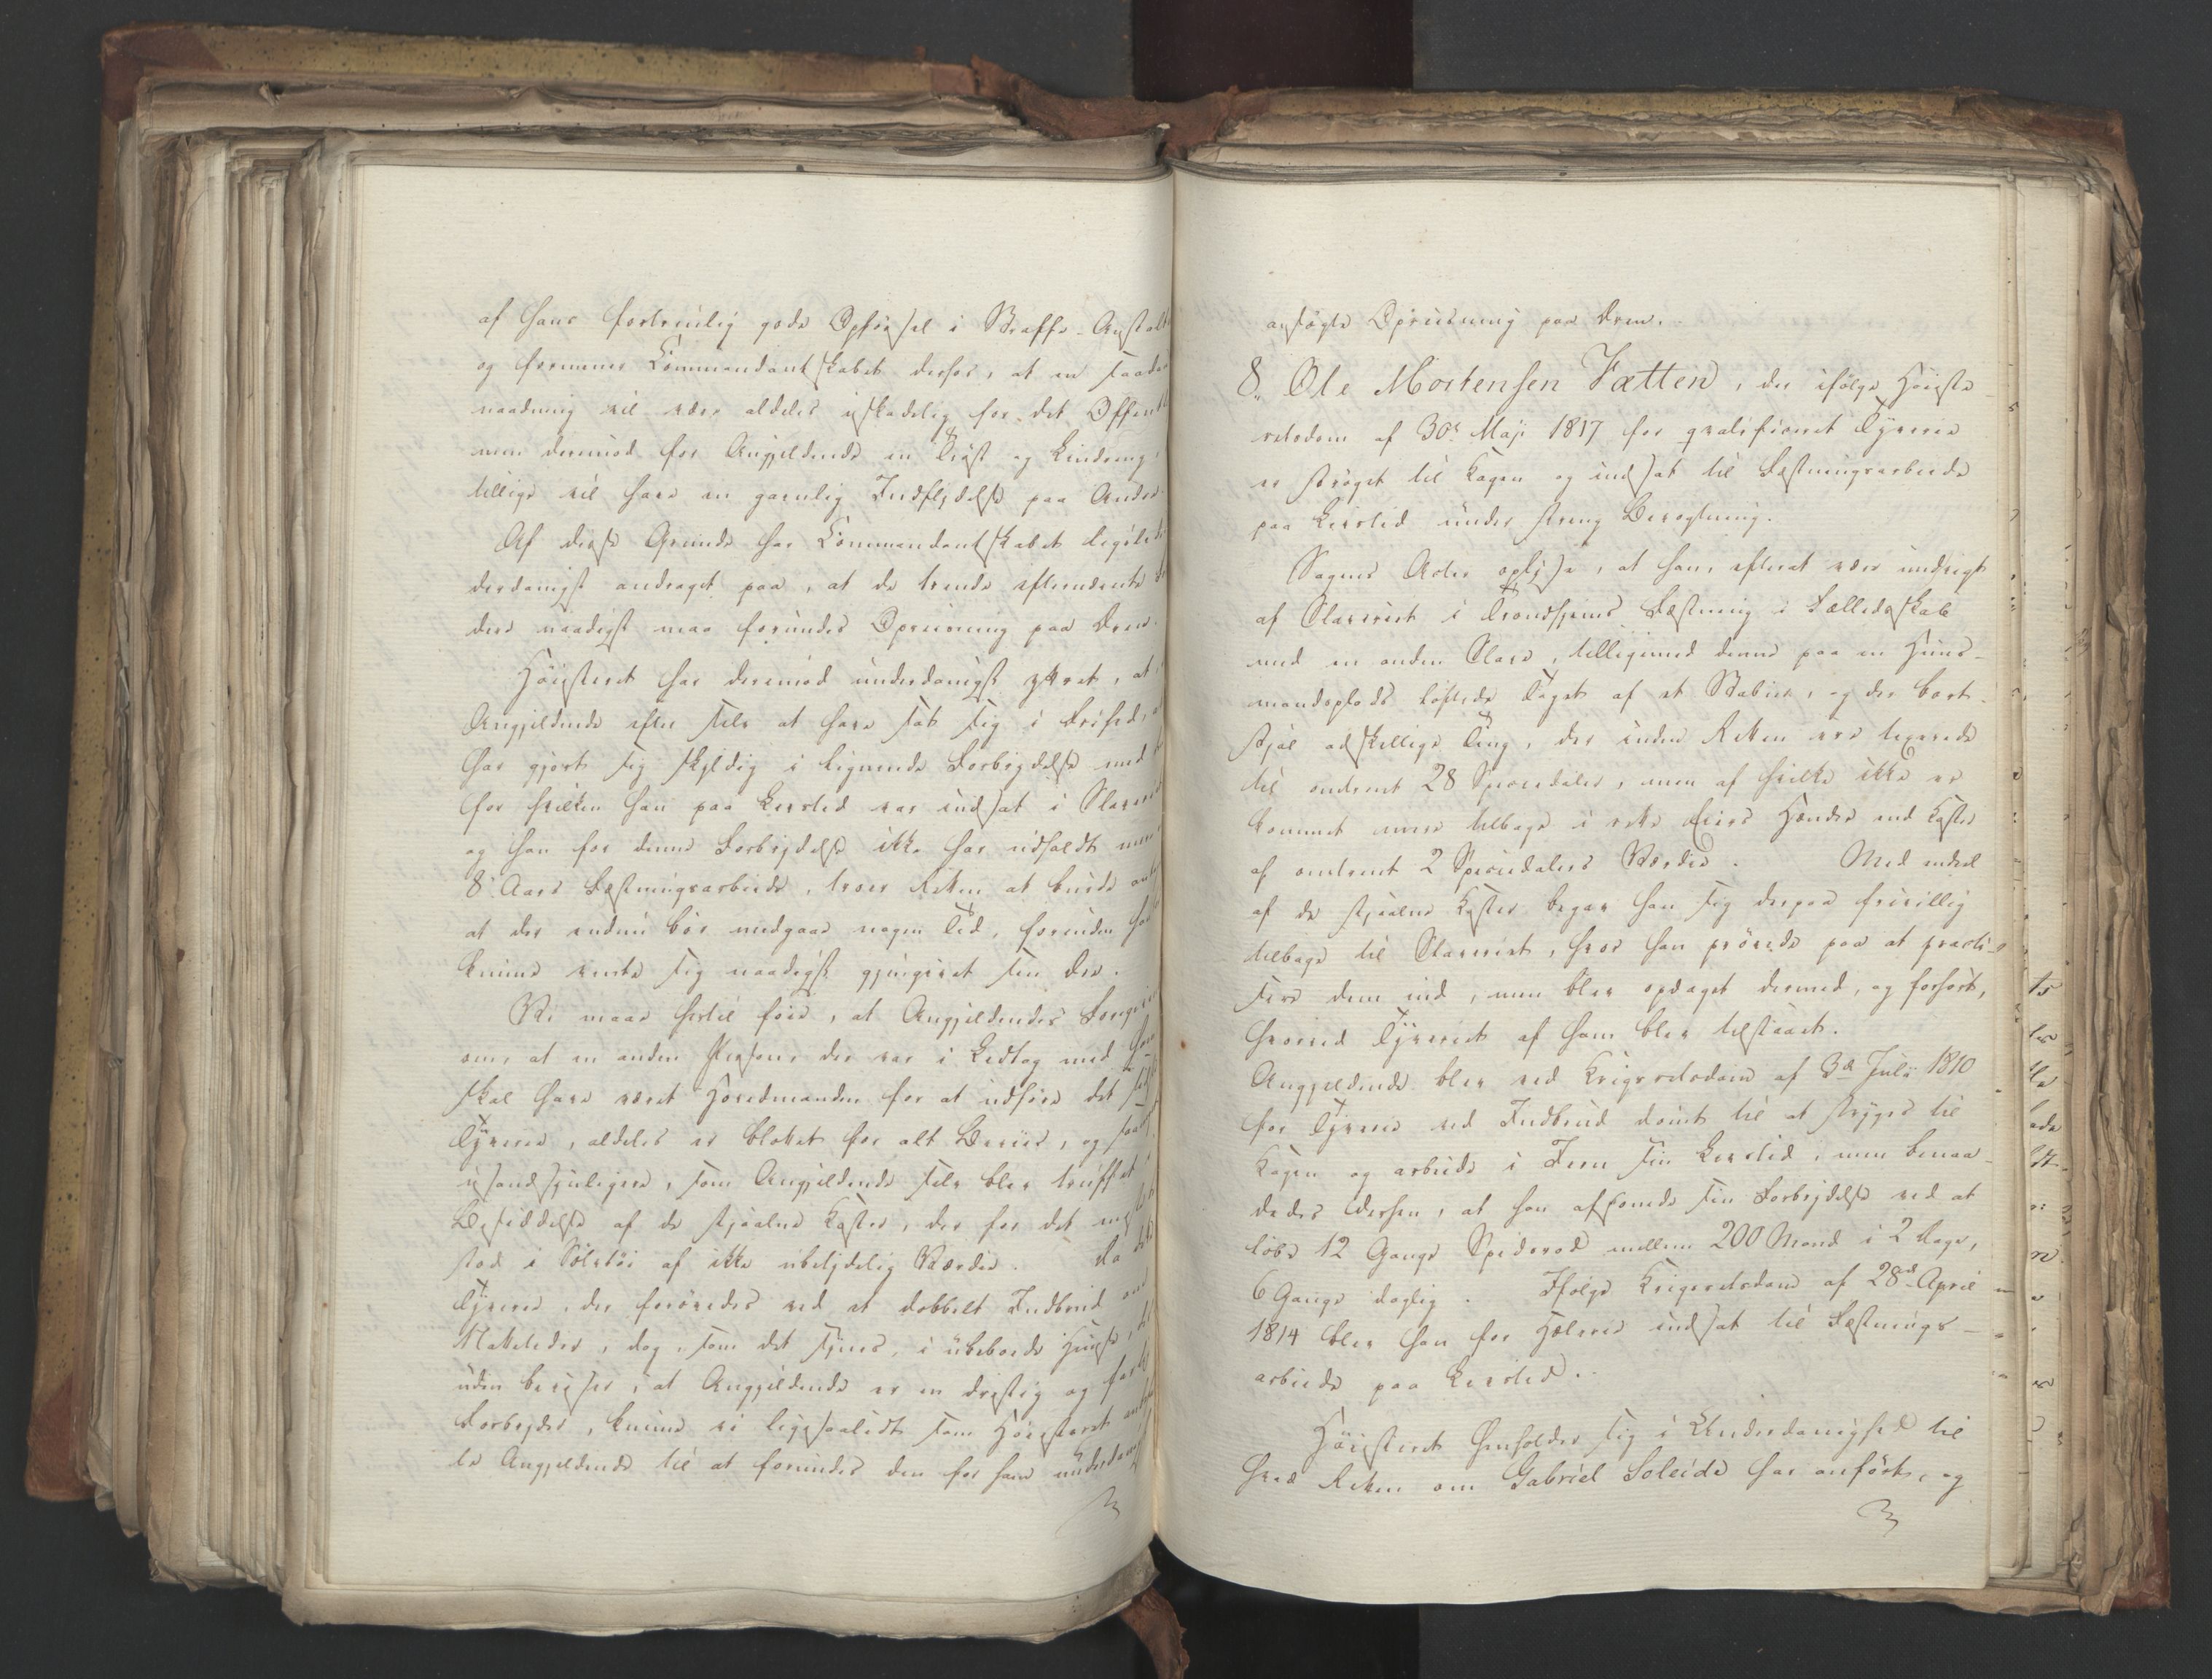 af hans fortrinlig gode Opførsel i Straffe-Anstalt
og formener Commandantskabet derfor, at en saadan
naadning vil være aldeles uskadelig for det Offent
men derimod for Angjeldende en Trøst og Lindring,
tillige vil have en gavnlig Indflydelse paa Andre.
Af disse Grunde har Commandantskabet
derdanigst andraget paa, at de trende
ders naadigst maa forundes Opreisning paa Æren.
Høiesteret har derimod underdanigst yttret, at
Angjeldende efter selv at have sat sig i Frihed,
har gjort sig skyldig i lignende Forbrydelse med
for hvilken han paa Livstid var indsat i Slaveriet
og han for denne Forbrydelse ikke har udholdt mere
8 Aars Fæstningsarbeide, troer Retten at burde
at der endnu bør medgaae nogen Tid, forinden han
kunne vente sig naadigst gjengivet sin Ære.
Vi maae hertil føie, at Angjeldendes Foregivende
om, at en anden Person, der var i Ledtog med ham
skal have været Hovedmanden for at udføre det
Tyverie, aldeles er blottet for alt Beviis, og saa
usandsynligere, som Angjeldende selv blev truffet i
Besiddelse af de stjaalne Koster, der for det meste
stod i Sølvtøi af ikke ubetydelig Værdie. Da dette
Tyverie, der forøvedes ved et dobbelt Indbrud
Nattetider, dog, som det synes, i ubeboede Huuse,
uden beviser, at Angjeldende er en dristig og farlig
Forbryder, kunne vi ligesaalidt som Høiesteret
le Angjeldende til at forundes den for ham underdanigst
ansøgte Opreisning paa Æren.
8. Ole Mortensen Fætten, der ifølge Høieste-
retsdom af 30te Maji 1817 for qvalificeret Tyverie
er strøget til Kagen og indsat til Fæstningsarbeide
paa Livstid under streng Bevogtning.
Sagens Acter oplyse, at han, efterat være undvigt
af Slaveriet i Trondhjems Fæstning i Fælledsskab
med en anden Slave, tilligemed denne paa en Huus-
mandsplads løftede Taget af et Stabur, og der bort-
stjal adskillige Ting, der inden Retten ere taxerede
til omtrent 28 Speciedaler, men af hvilke ikke er
kommet mere tilbage i rette Eiers Hænder end Koster
af omtrent 2 Speciedalers Værdie. Med endeel
af de stjaalne Koster begav han sig derpaa frivillig
tilbage til Slaveriet, hvor han prøvede paa at practi-
sere dem ind, men blev opdaget dermed, og forhørt,
hvorved Tyveriet af ham blev tilstaaet.
Angjeldende blev ved Krigsretsdom af 3de Julii 1810
for Tyverie ved Indbrud dømt til at stryges til
Kagen og arbeide i Jern sin Livstid, men benaa-
dedes derhen, at han afsonede sin Forbrydelse ved at
løbe 12 Gange Spidsrod mellem 200 Mand i 2 Dage,
6 Gange daglig. Ifølge Krigsretsdom af 28de April
1814 blev han for Hælerie indsat til Fæstnings-
arbeide paa Livstid.
Høiesteret henholder sig i Underdanighed til
hvad Retten om Gabriel Soleide har anført, og